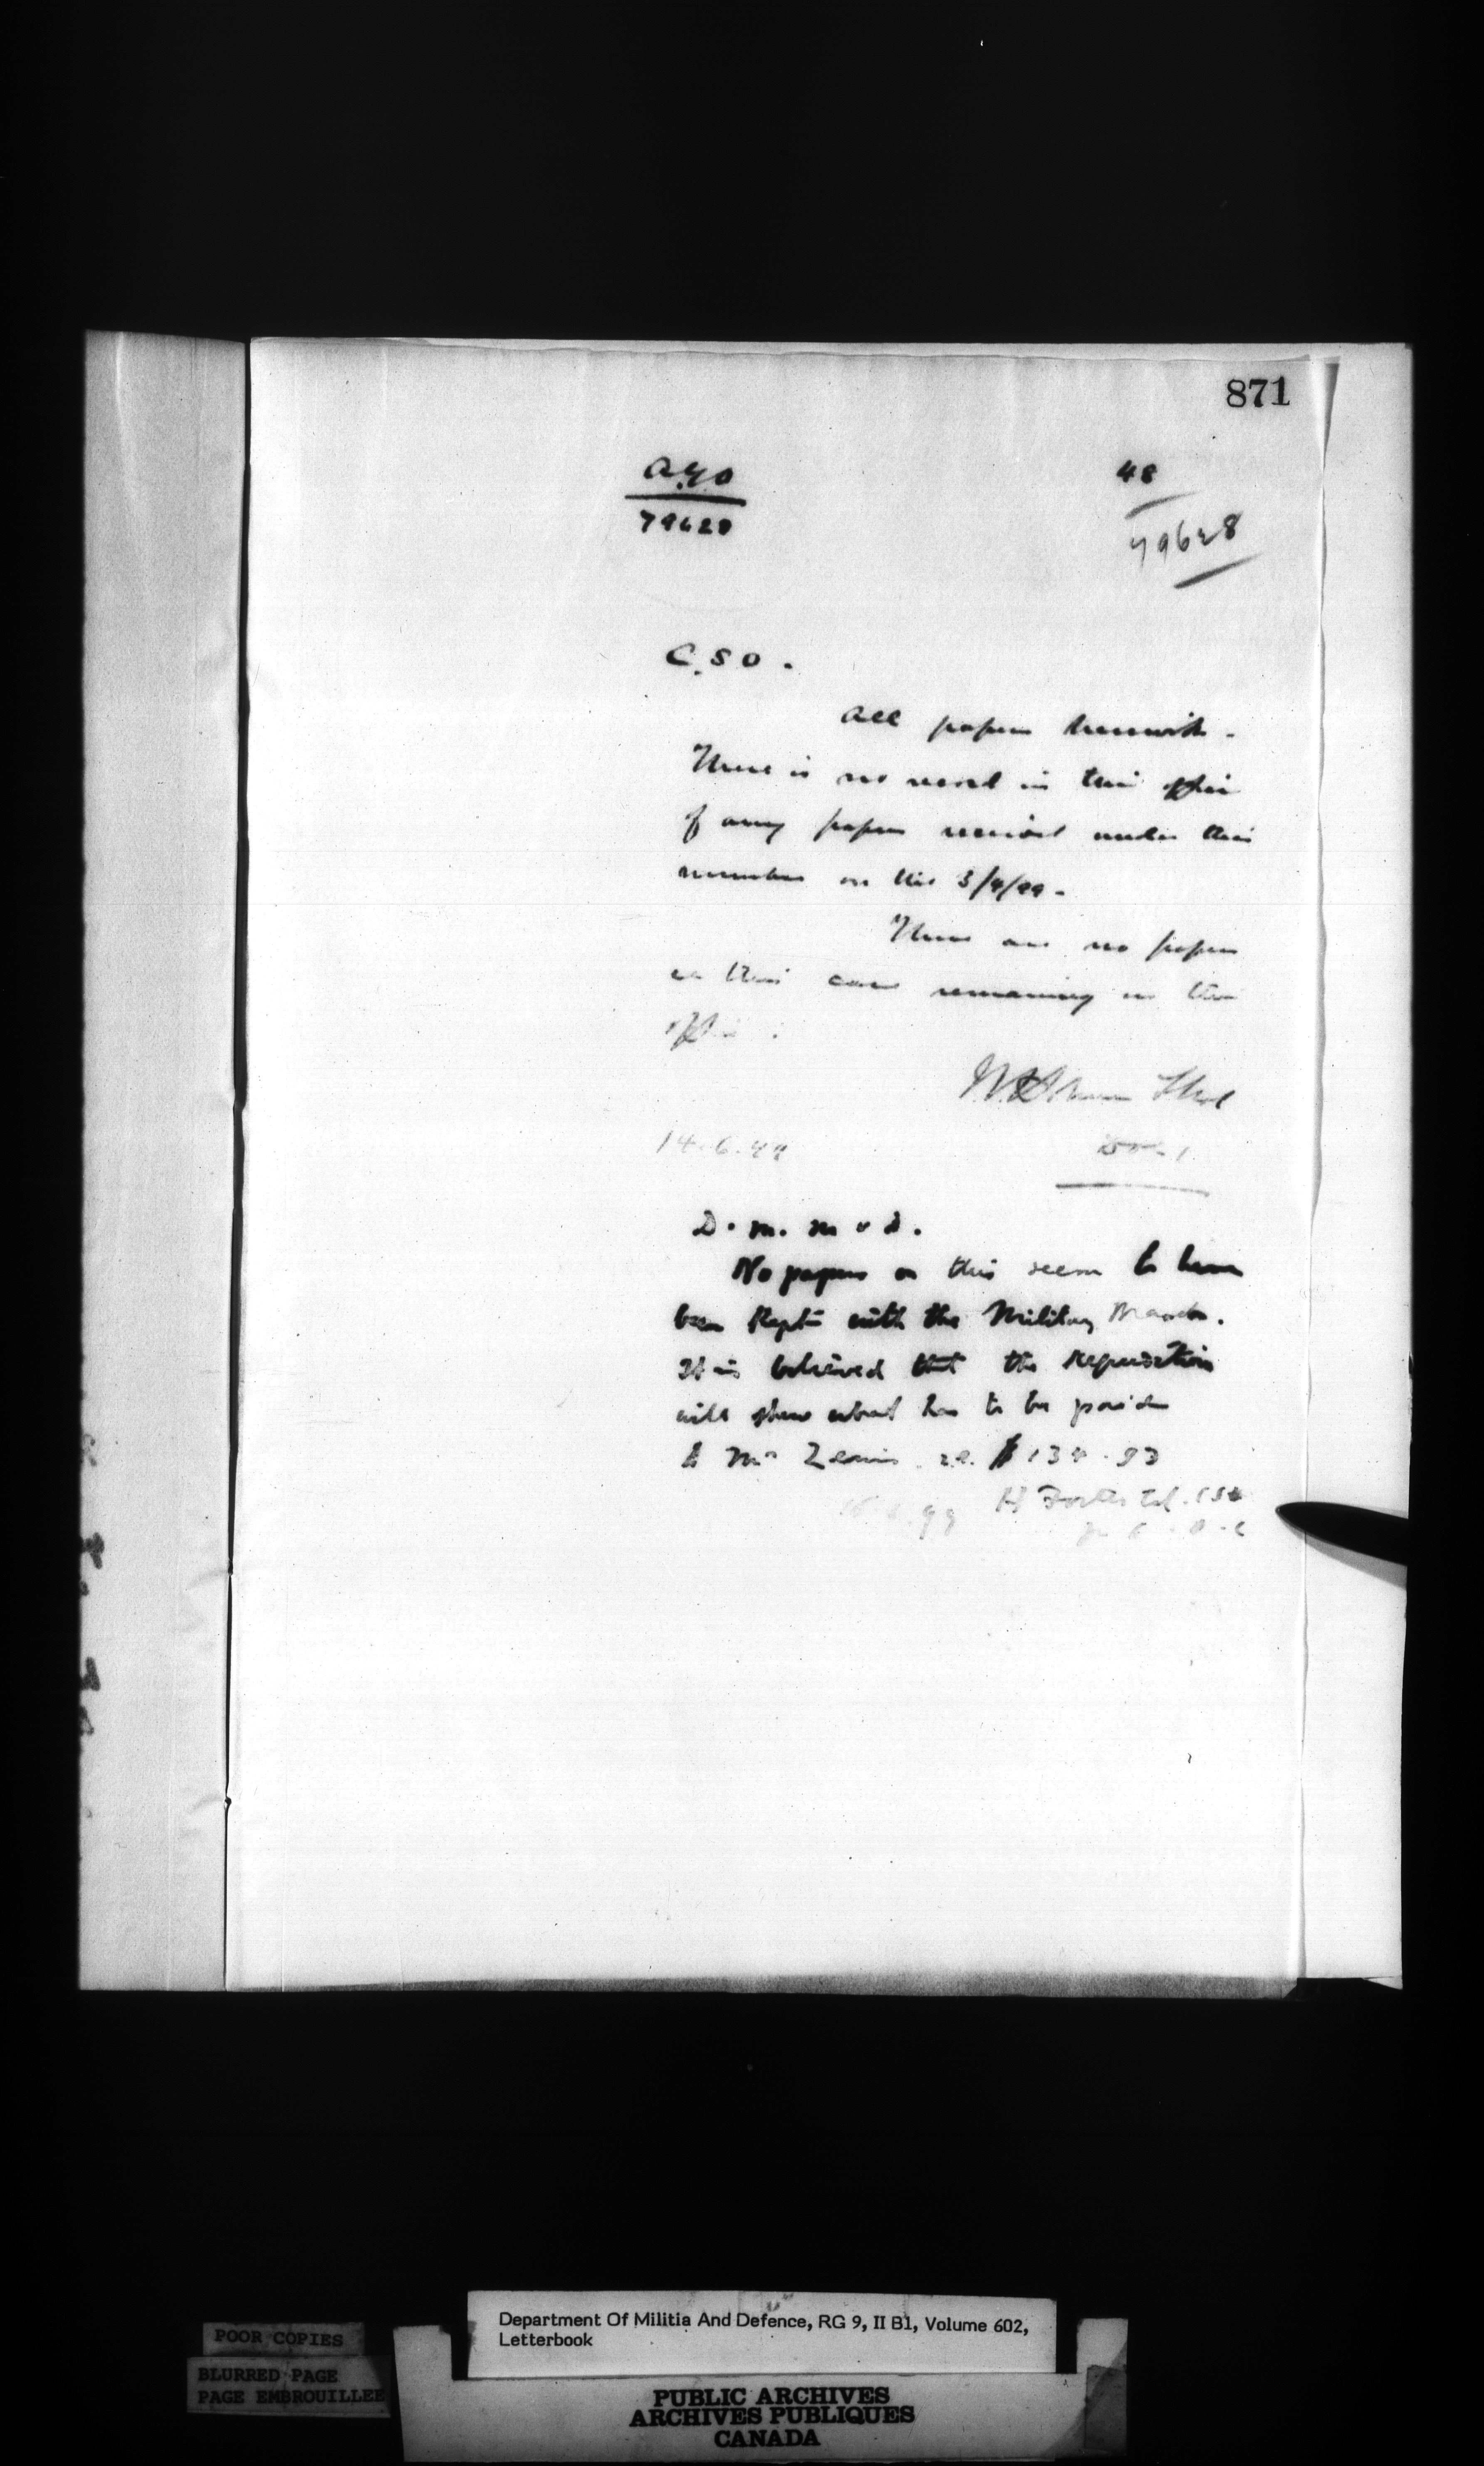 871
48
79628
79628
C.S.O.
All papers herewith.
There is no record in this office
of any papers received under this
number on the 3/4/99.
There are no papers
on this case remaining in this
office.
14.6.99
D.M. M & D.
No papers on this seem to have
been kept with the Military Branch.
It is believed that the requisition
will show what has to be paid
to Mr Lewis $134.93
H Foster Col.
POOR COPIES
BLURRED PAGE
PAGE EMBROUILLEE
Department Of Militia And Defence, RG 9, II B1, Volume 602,
Letterbook
PUBLIC ARCHIVES
ARCHIVES PUBLIQUES
CANADA